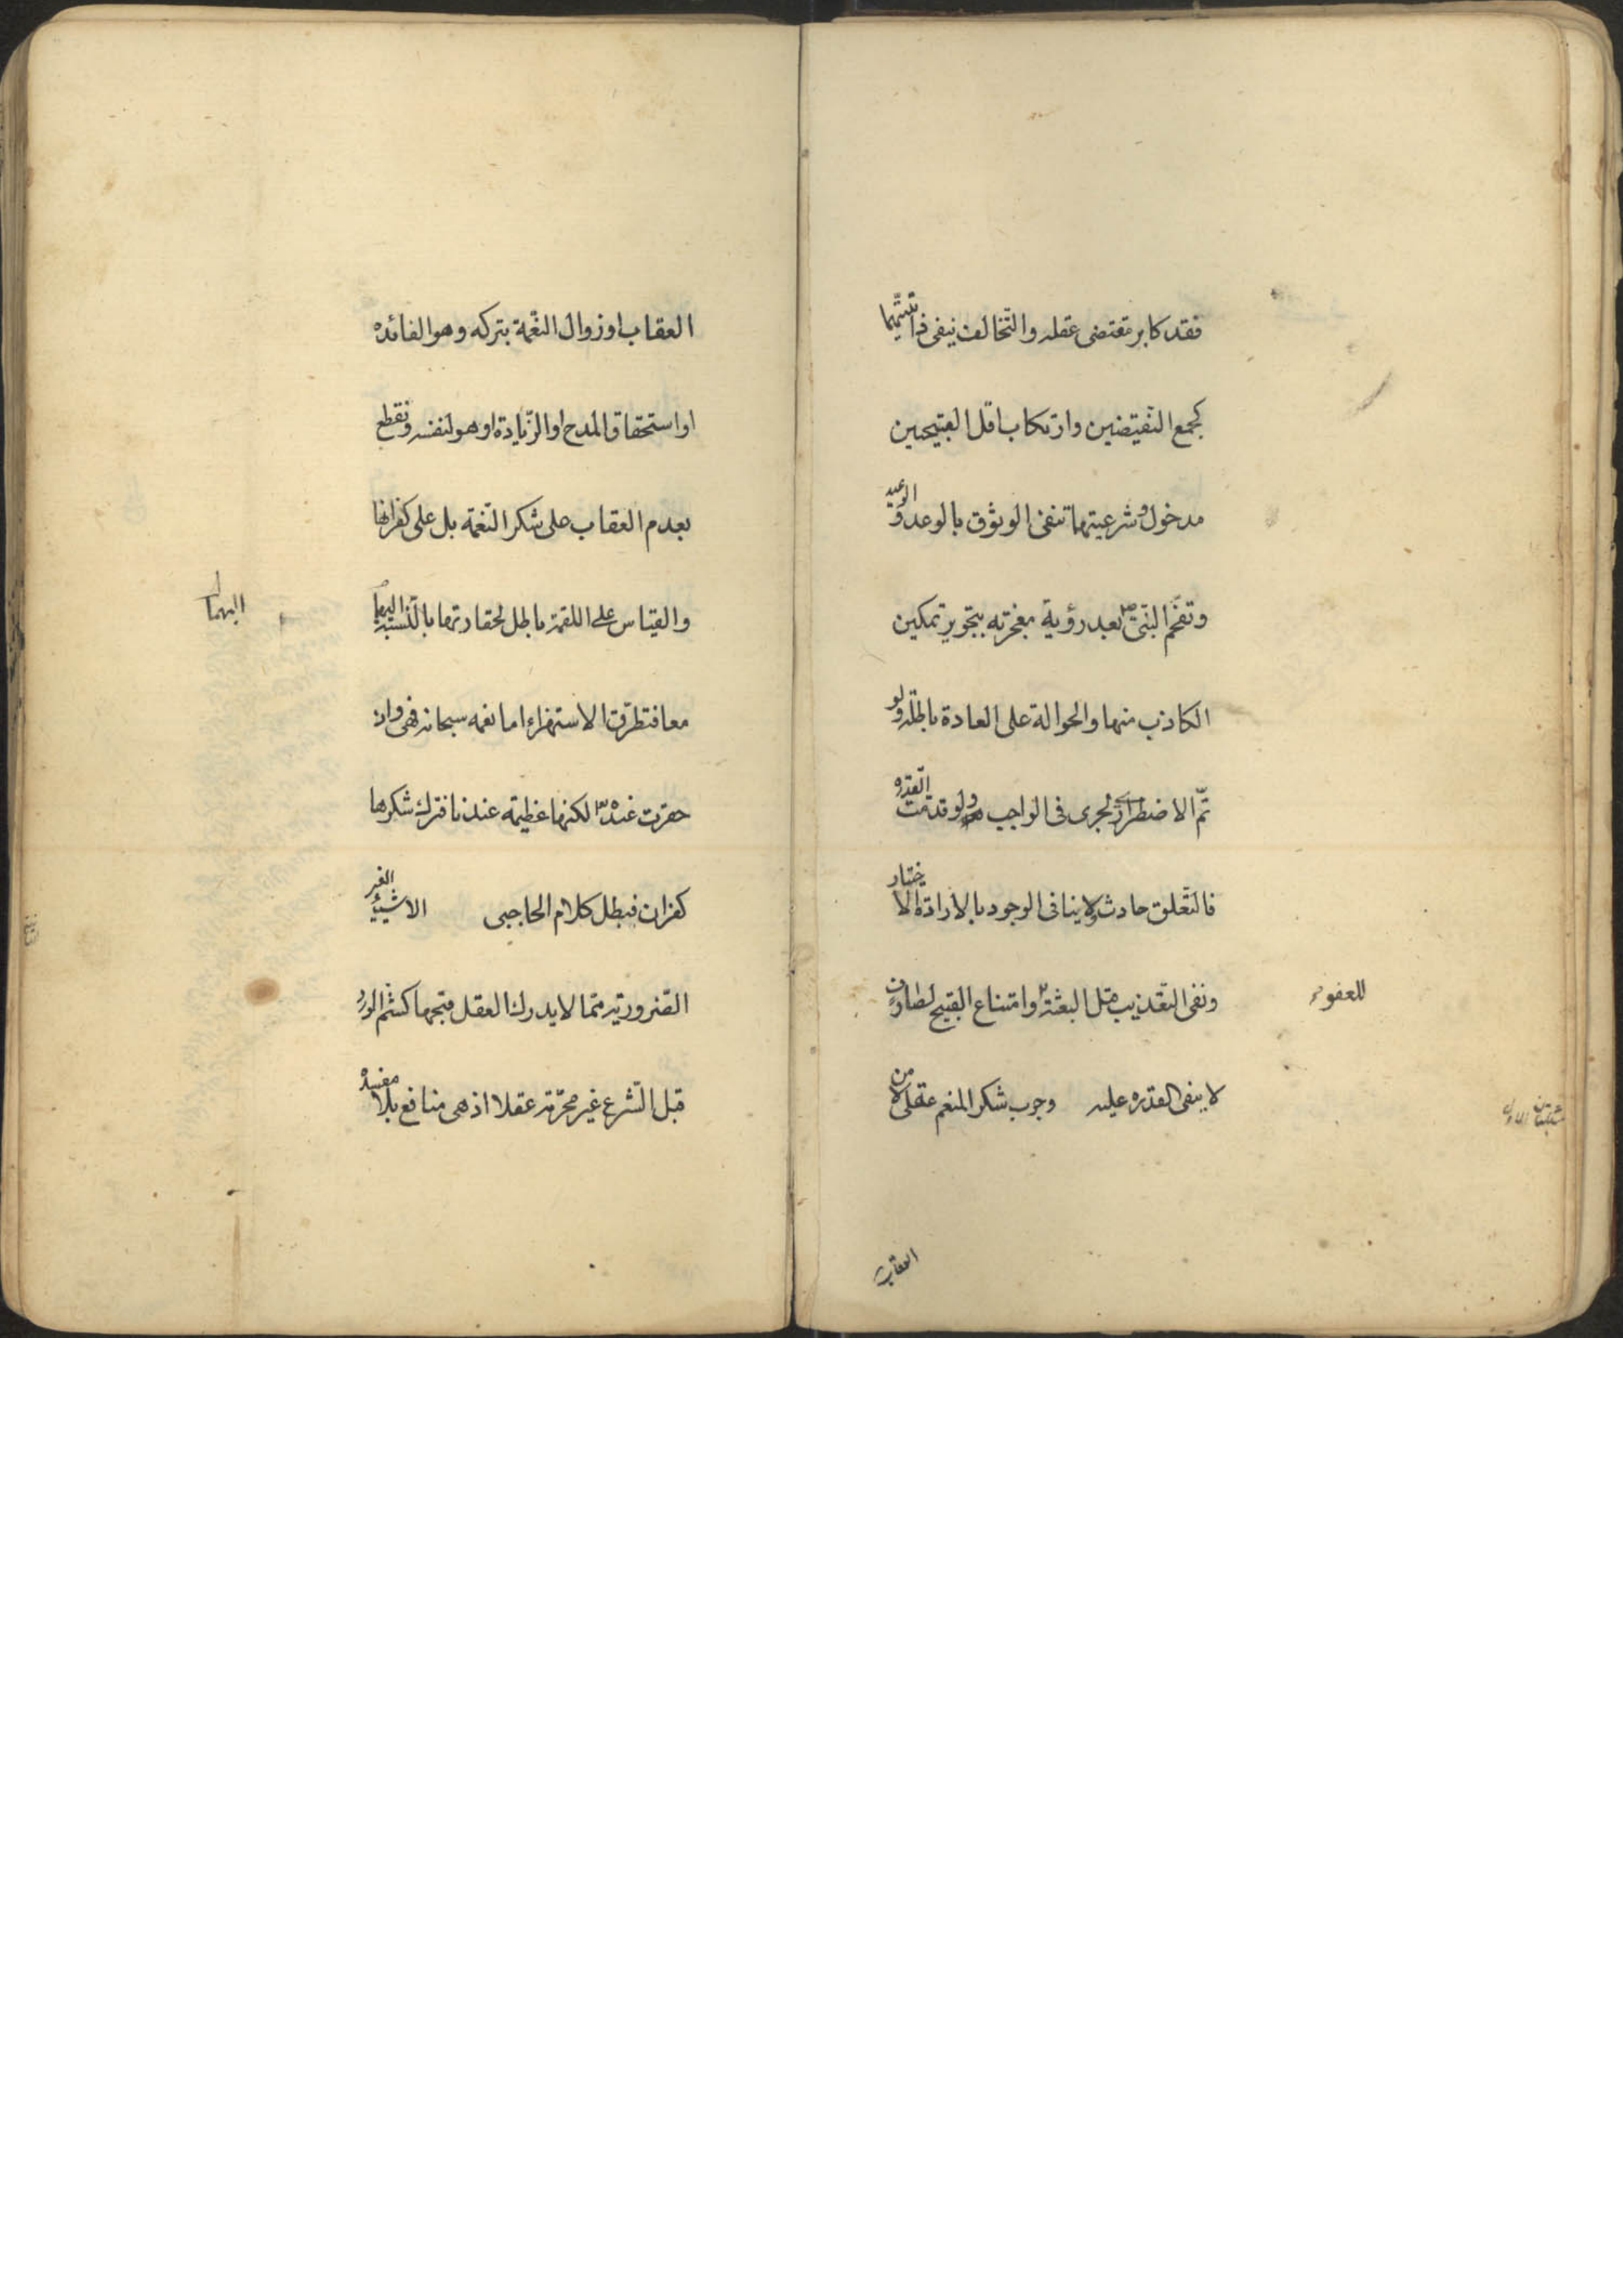 فقد كابر مقتضى عقله والتخالف ينفى ذاتيتهما
كجمع النقيضين وارتكاب اقل القبيحين
مدخول وشرعيتهما تنفى الوثوق بالوعد والوعيد
وتفحم النبى ص بعد رؤية معجزته بتجويز تمكين
الكاذب منها والحوالة على العادة باطلة ولو
تم الاضطرار لجرى فى الواجب ولو قدمت القدرة
فالتعلق حادث ولا ينافى الوجوب بالارادة الاختيار
ونفى التعذيب قبل البعثة وامتناع القبيح لصارف
للعفو
لا ينفى القدرة عليه وجوب شكر المنعم عقلى لا من
العقاب
العقاب او زوال النعمة بتركه وهو الفائده
او استحقاق المدح او الزيادة او هو لنفسه ونقطع
بعدم العقاب على شكر النعمة بل على كفرانها
والقياس على اللقمة باطل لحقارتها بالنسبة اليهما
اليهما
معا فتطرق الاستهزاء اما نعمه سبحانه فهى وان
حقرت عنده لكنها عظيمة عندنا فترك شكرها
كفران فبطل كلام الحاجبى الاشياء الغير
الضرورية مما لا يدرك العقل قبحها كشم الورد
قبل الشرع غير محرمة عقلا اذ هى منافع بلا مفسدة